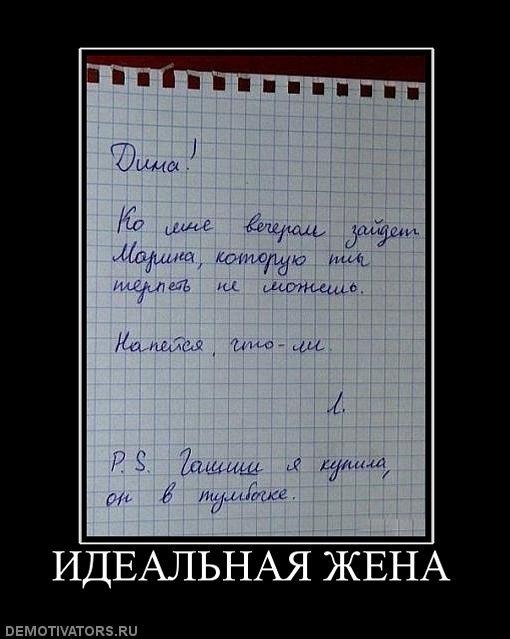 Дима!
Ко мне вечером зайдет
Марина, которую ты
терпеть не можешь.
Напейся, что-ли.
Л.
P.S. Гашиш я купила,
он в тумбочке.
ИДЕАЛЬНАЯ ЖЕНА
DEMOTIVATORS.RU